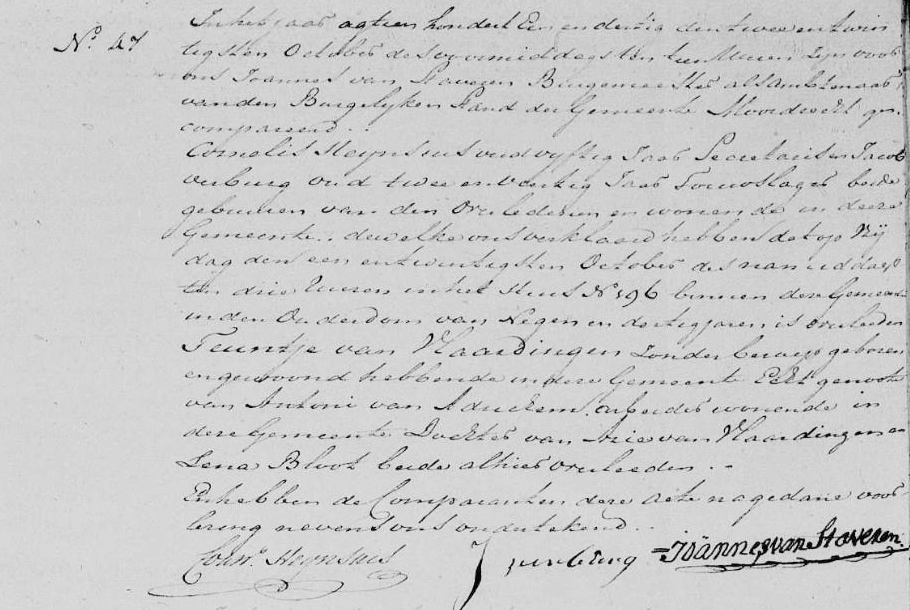 No. 47
In het jaar agtien honderd Een en dertig den twee en twin
tigsten October des voormiddags ten tien Uuren zyn voor
ons Joannes van Staveren Burgemeester als Ambtenaar
van den Burgelyken Stand der Gemeente Moordrecht ge
compareerd ..
Cornelis Heynsius oud vyftig Jaar Secretaris en Jacob
verburg oud twee en veertig Jaar Touwslager beide
gebuuren van den Overledenen en wonende in deeze
Gemeente .. dewelke ons verklaard hebben dat op Vrij
dag den een en twintigsten October des namiddags
ten drie Uuren in het Huis No 196 binnen deze Gemeente
in den Ouderdom van Negen en dertig jaren is overleden
Teuntje van Vlaardingen zonder beroep geboren
en gewoond hebbende in deze Gemeente Echtgenoote
van Antoni van arbeider wonende in
deze Gemeente Dochter van Arie van Vlaardingen en
Lena Bloot beide alhier overleeden ..
En hebben de Comparanten deze acte na gedane voor
lezing nevens ons ondertekend ..
Corns. Heynsius J verburg Joännes van Staveren